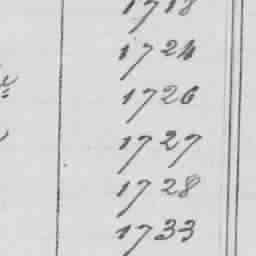 1718
1724
1726
1727
1728
1733